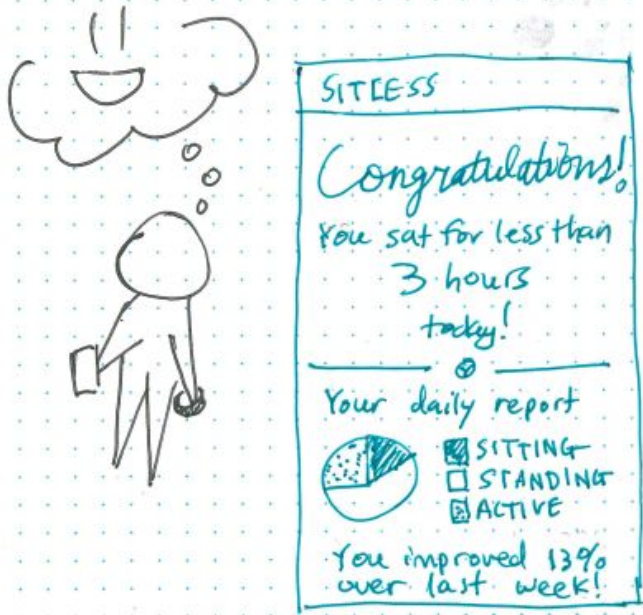 SITLESS
Congratulations!
You sat for less than
3 hours
today!
Your daily report
SITTING
STANDING
ACTIVE
You improved 13%
over last week!